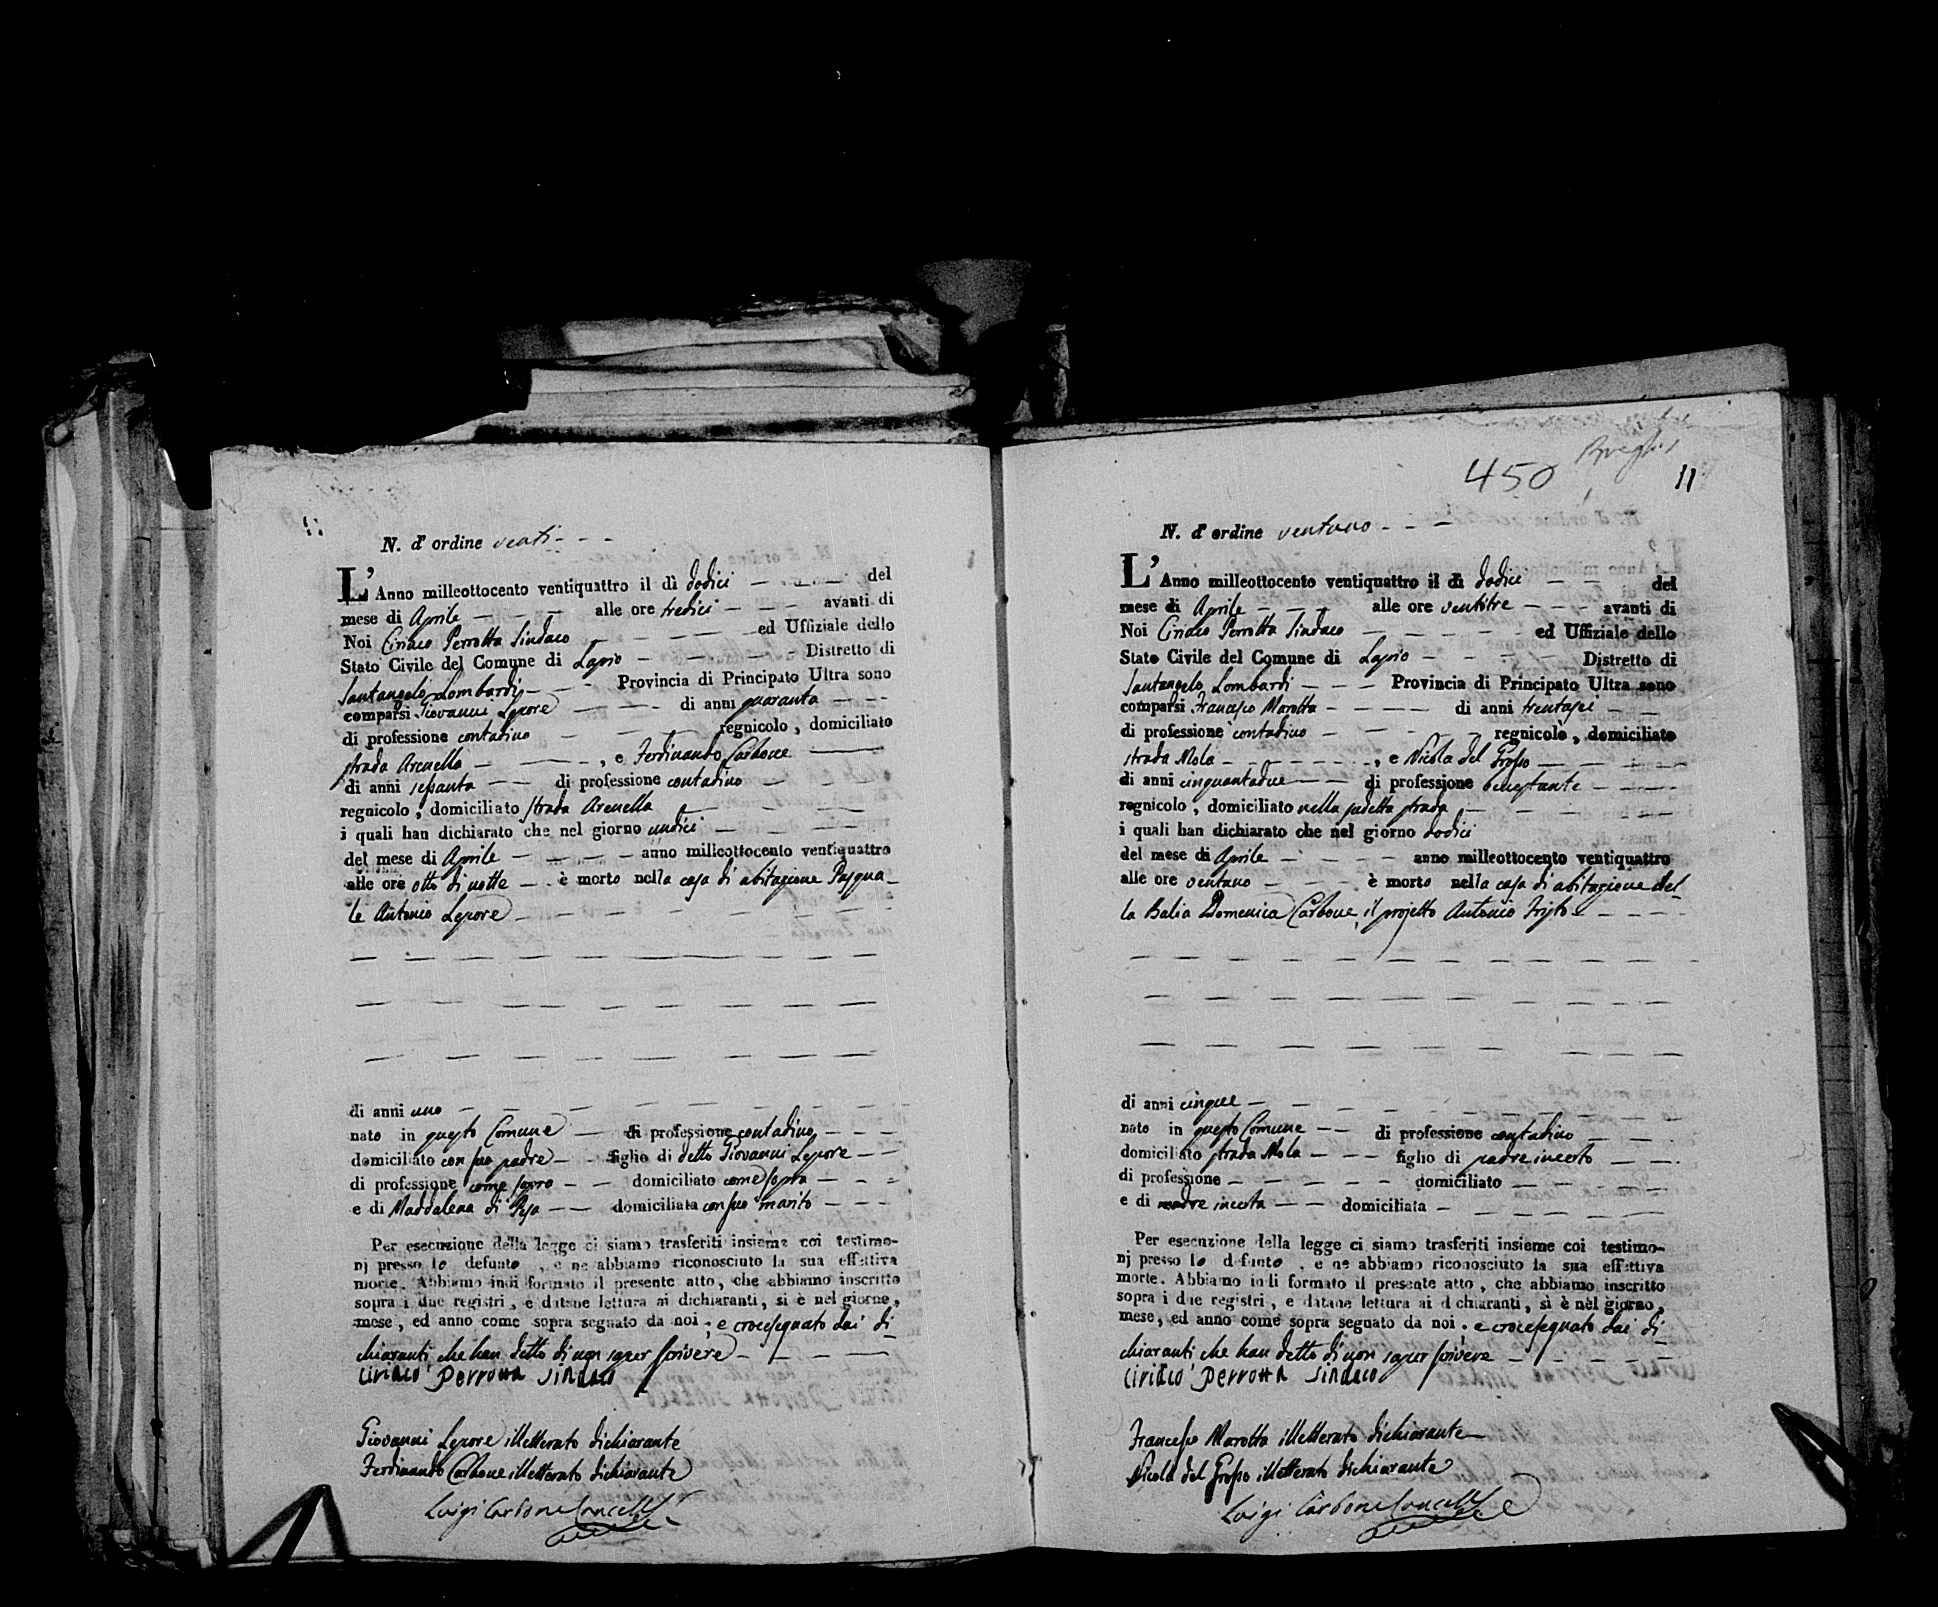 N. d' ordine venti
L' Anno milleottocento ventiquattro il dì dodici del
mese di Aprile alle ore tredici avanti di
Noi Ciriaco Perrotta Sindaco ed Uffiziale dello
Stato Civile del Comune di Lapio Distretto di
Santangelo Lombardi Provincia di Principato Ultra sono
comparsi Giovanni Lepore di anni quaranta
di professione contadino regnicolo, domiciliato
strada Arenella, e Ferdinando Carbone
di anni sessanta di professione contadino
regnicolo, domiciliato strada Arenella
i quali han dichiarato che nel giorno undici
del mese di Aprile anno milleottocento ventiquattro
alle ore otto di notte è morto nella casa di abitazione Pasqua-
le Antonio Lepore
di anni uno
nato in questo Comune di professione contadino
domiciliato con suo padre figlio di detto Giovanni Lepore
di professione come sopra domiciliato come sopra
e di Maddalena di domiciliata con suo marito
Per esecuzione della legge ci siamo trasferiti insieme coi testimo-
nj presso lo defunto, e ne abbiamo riconosciuto la sua effettiva
morte. Abbiamo indi formato il presente atto, che abbiamo inscritto
sopra i due registri, e datane lettura ai dichiaranti, si è nel giorno,
mese, ed anno come sopra segnato da noi; e crocesegnato dai di-
chiaranti che han detto di non saper scrivere
Ciriaco Perrotta Sindaco
Giovanni Lepore illetterato dichiarante
Ferdinando Carbone illetterato dichiarante
Luigi Carbone Cancell.
450
11
N. d' ordine ventuno
L' Anno milleottocento ventiquattro il dì dodici del
mese di Aprile alle ore ventitre avanti di
Noi Ciriaco Perrotta Sindaco ed Uffiziale dello
Stato Civile del Comune di Lapio Distretto di
Santangelo Lombardi Provincia di Principato Ultra sono
comparsi Francesco Marotta di anni trentasei
di professione contadino regnicolo, domiciliato
strada Mola, e Nicola del Grosso
di anni cinquantadue di professione benestante
regnicolo, domiciliato nella sudetta strada
i quali han dichiarato che nel giorno dodici
del mese di Aprile anno milleottocento ventiquattro
alle ore ventuno è morto nella casa di abitazione del-
la Balia Domenica Carbone, il projetto Antonio Tristo
di anni cinque
nato in questo Comune di professione contadino
domiciliato strada Mola figlio di padre incerto
di professione domiciliato
e di madre incerta domiciliata
Per esecuzione della legge ci siamo trasferiti insieme coi testimo-
nj presso lo defunto, e ne abbiamo riconosciuto la sua effettiva
morte. Abbiamo indi formato il presente atto, che abbiamo inscritto
sopra i due registri, e datane lettura ai dichiaranti, si è nel giorno,
mese, ed anno come sopra segnato da noi. e crocesegnato dai di-
chiaranti che han detto di non saper scrivere
Ciriaco Perrotta Sindaco
Francesco Marotta illetterato dichiarante
Nicola del Grosso illetterato dichiarante
Luigi Carbone Cancell.